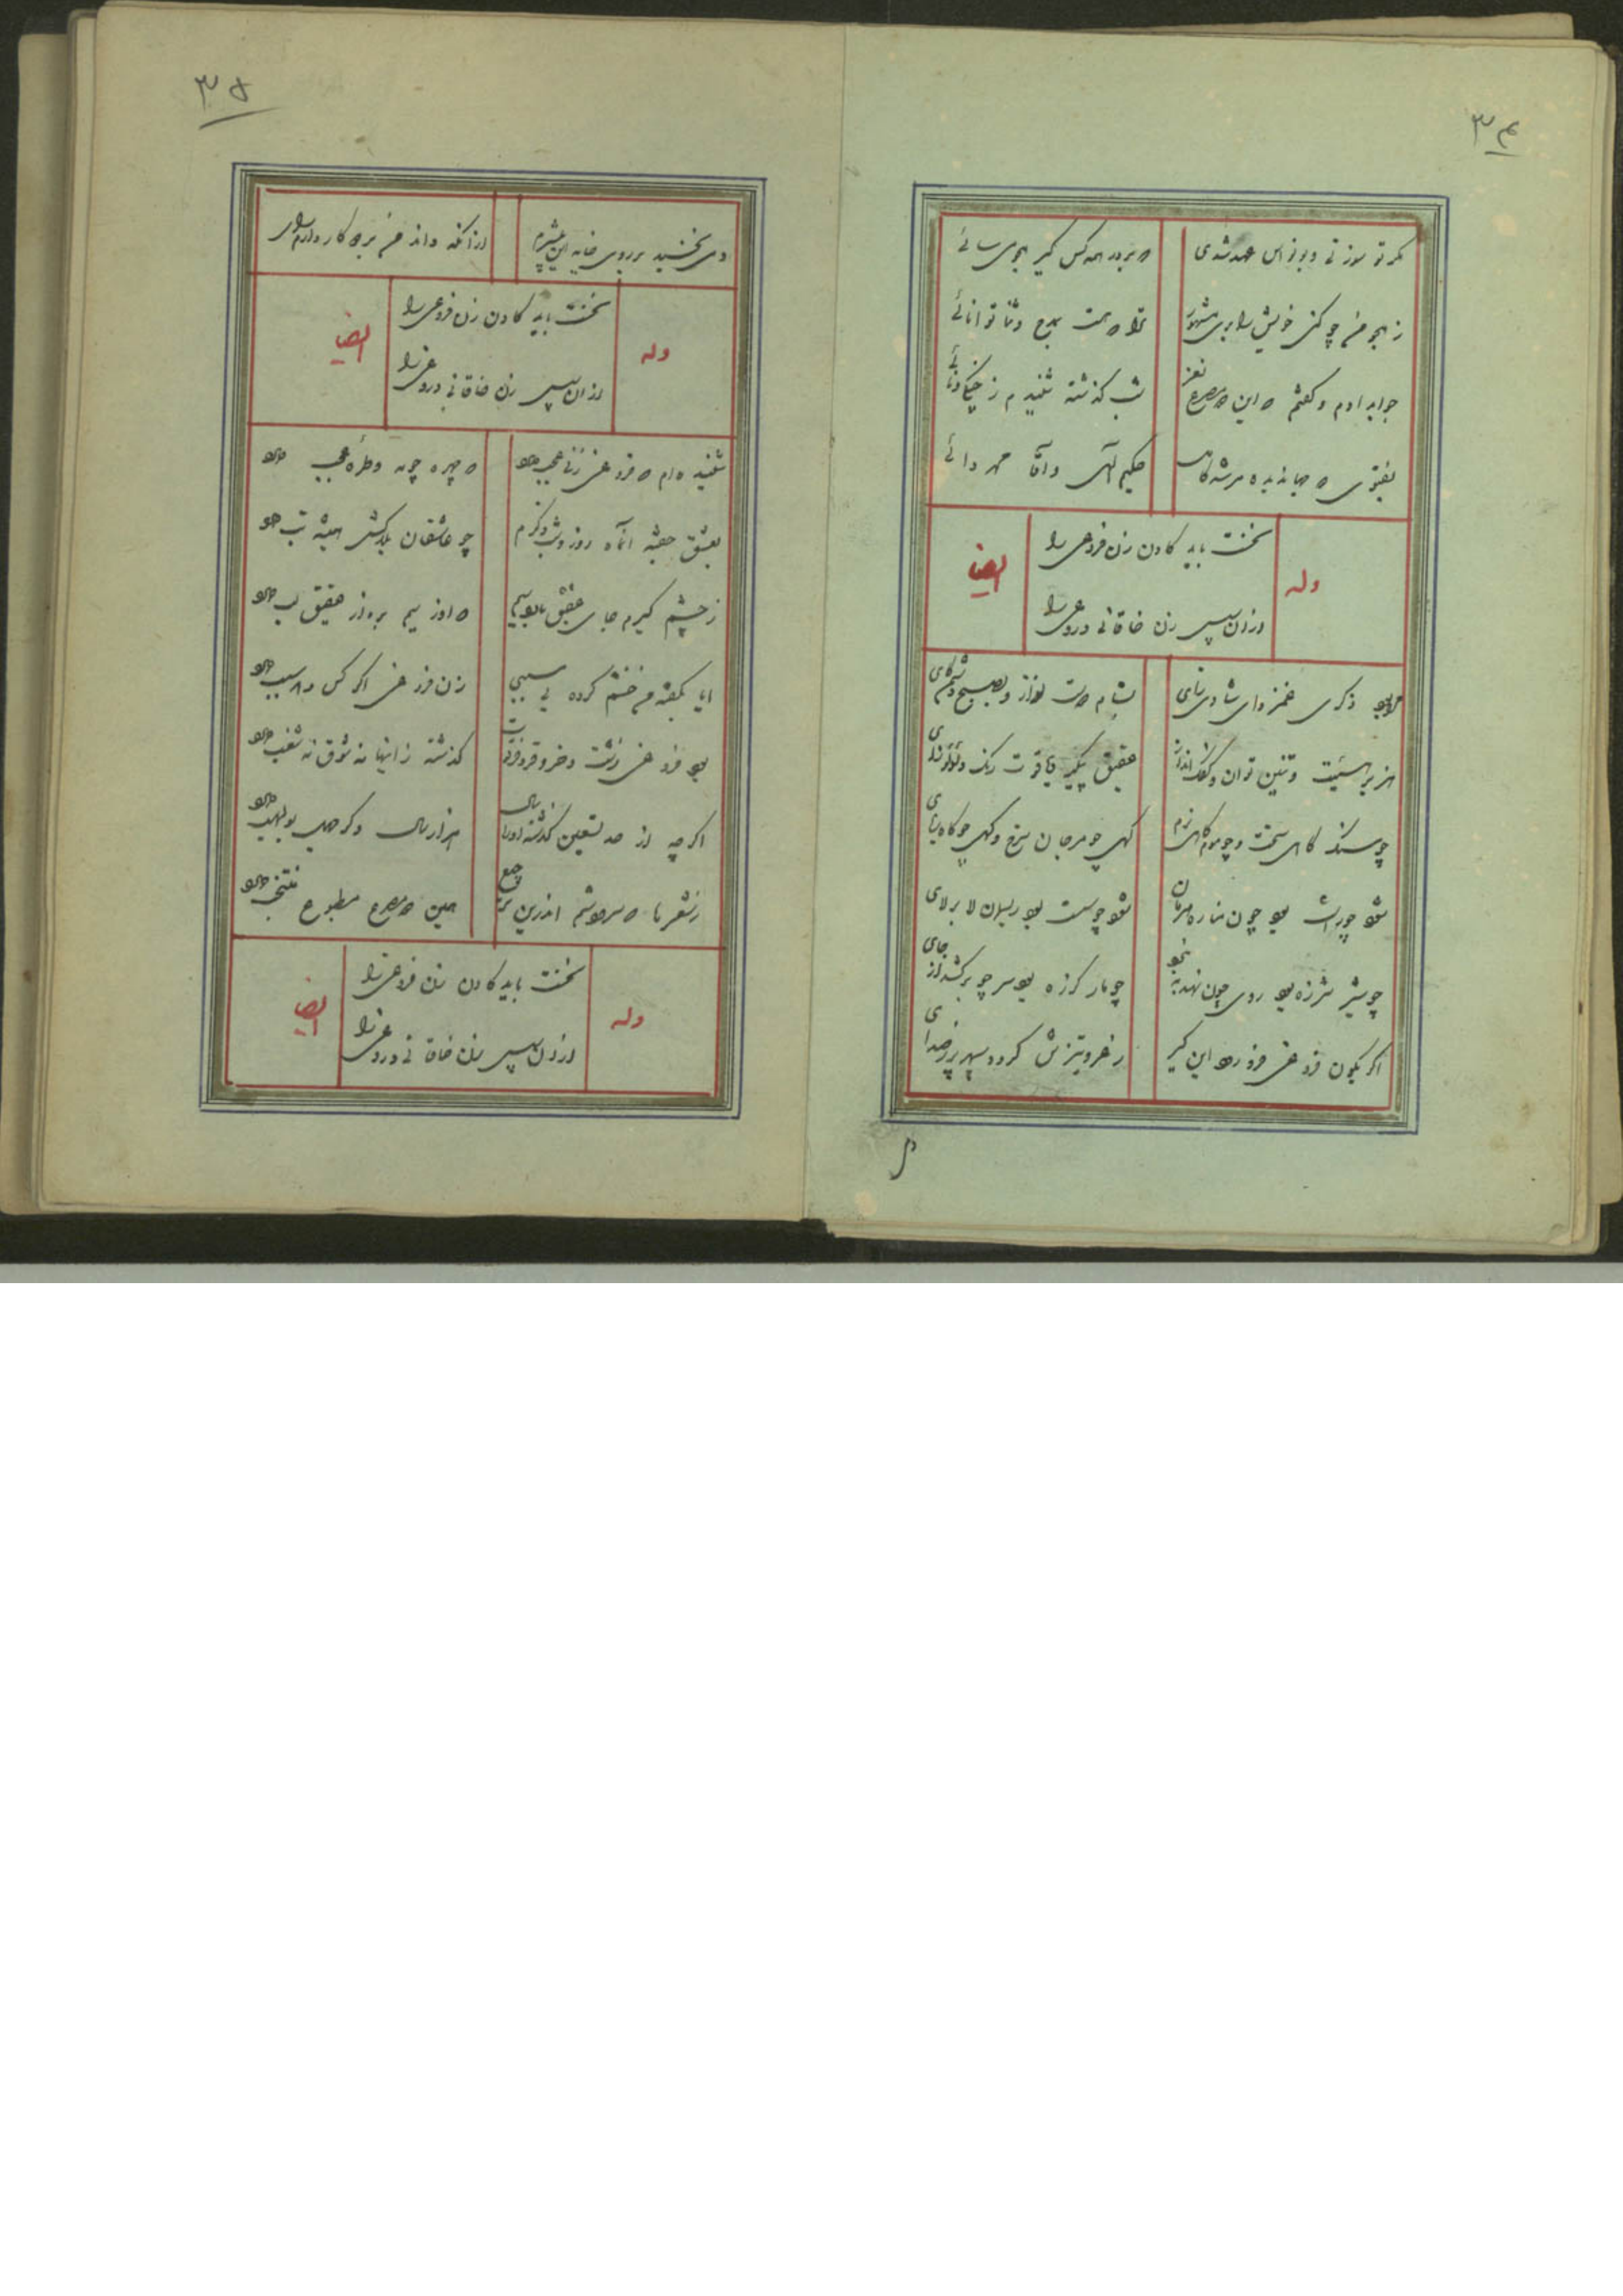 ۳۴
مکر تو سوزنی و بونواس عهد شدی
که بر در همه کس کیر هجو می سائی
ز هجو من چو کنی خویش را بری مشهور
ترا که هست بمدح و ثنا توانائی
جواب دادم و گفتم که این مصرع نغز
شب گذشته شنیدم ز
بفتوی که جهاندیده مرشد کامل
حکیم الهی و آقا محمد دائی
وله
نخست باید کادن زن فروغی را
وزان سپس زن خاقانی دروغی را
ایضا
مرا بود ذکری غمزدای شادی زای
بشام دست نواز و بصبح شکم
هزبر هیبت و تنین توان و
عقیق پیکر یاقوت رنک و
چو سنک کاهی سخت و چو موم کاهی نرم
کهی چو مرجان سرخ و کهی چو کاه
شود چو راست بود چون مناره هرمان
شود چو سست بود ریسمان لا بر لای
چو شیر شرزه بود روی چون نهد به نخجو
چو مار کرزه بود سر چو برکشد از جای
اگر بکون فروغی فرو رود این کیر
ز خر و تیزش کردد سپهر پر ز صدای
۳۵
دمی نخسبد بر روی خایه این
از آنکه داند من بر چه کار دارم رای
وله
نخست باید کادن زن فروغی را
وزان سپس زن خاقانی دروغی را
ایضا
شنیده ام که فروغی زنی عجب دارد
که چهره چون مه و طره عجب دارد
بعشق حقه آن ماه روز و شب ذکرم
چو عاشقان بلاکش همیشه تب دارد
ز چشم کیرم جای عقیق بارد سیم
که او ز سیم بر و از عقیق لب دارد
ایا بکفته من خشم کرده بی سببی
زن فروغی اگر کس در سبب دارد
بود فروغی زشت و خر و
گذشته ز اینها نه ذوق نه شغب دارد
اگر چه از صد تسعین گذشته او را سال
هزار سال دگر جهل بولهب دارد
ز شعر ما که سرودیم اندرین
همین مصرع مطبوع منتخب دارد
وله
نخست باید کادن زن فروغی را
وزان سپس زن خاقانی دروغی را
ایضا